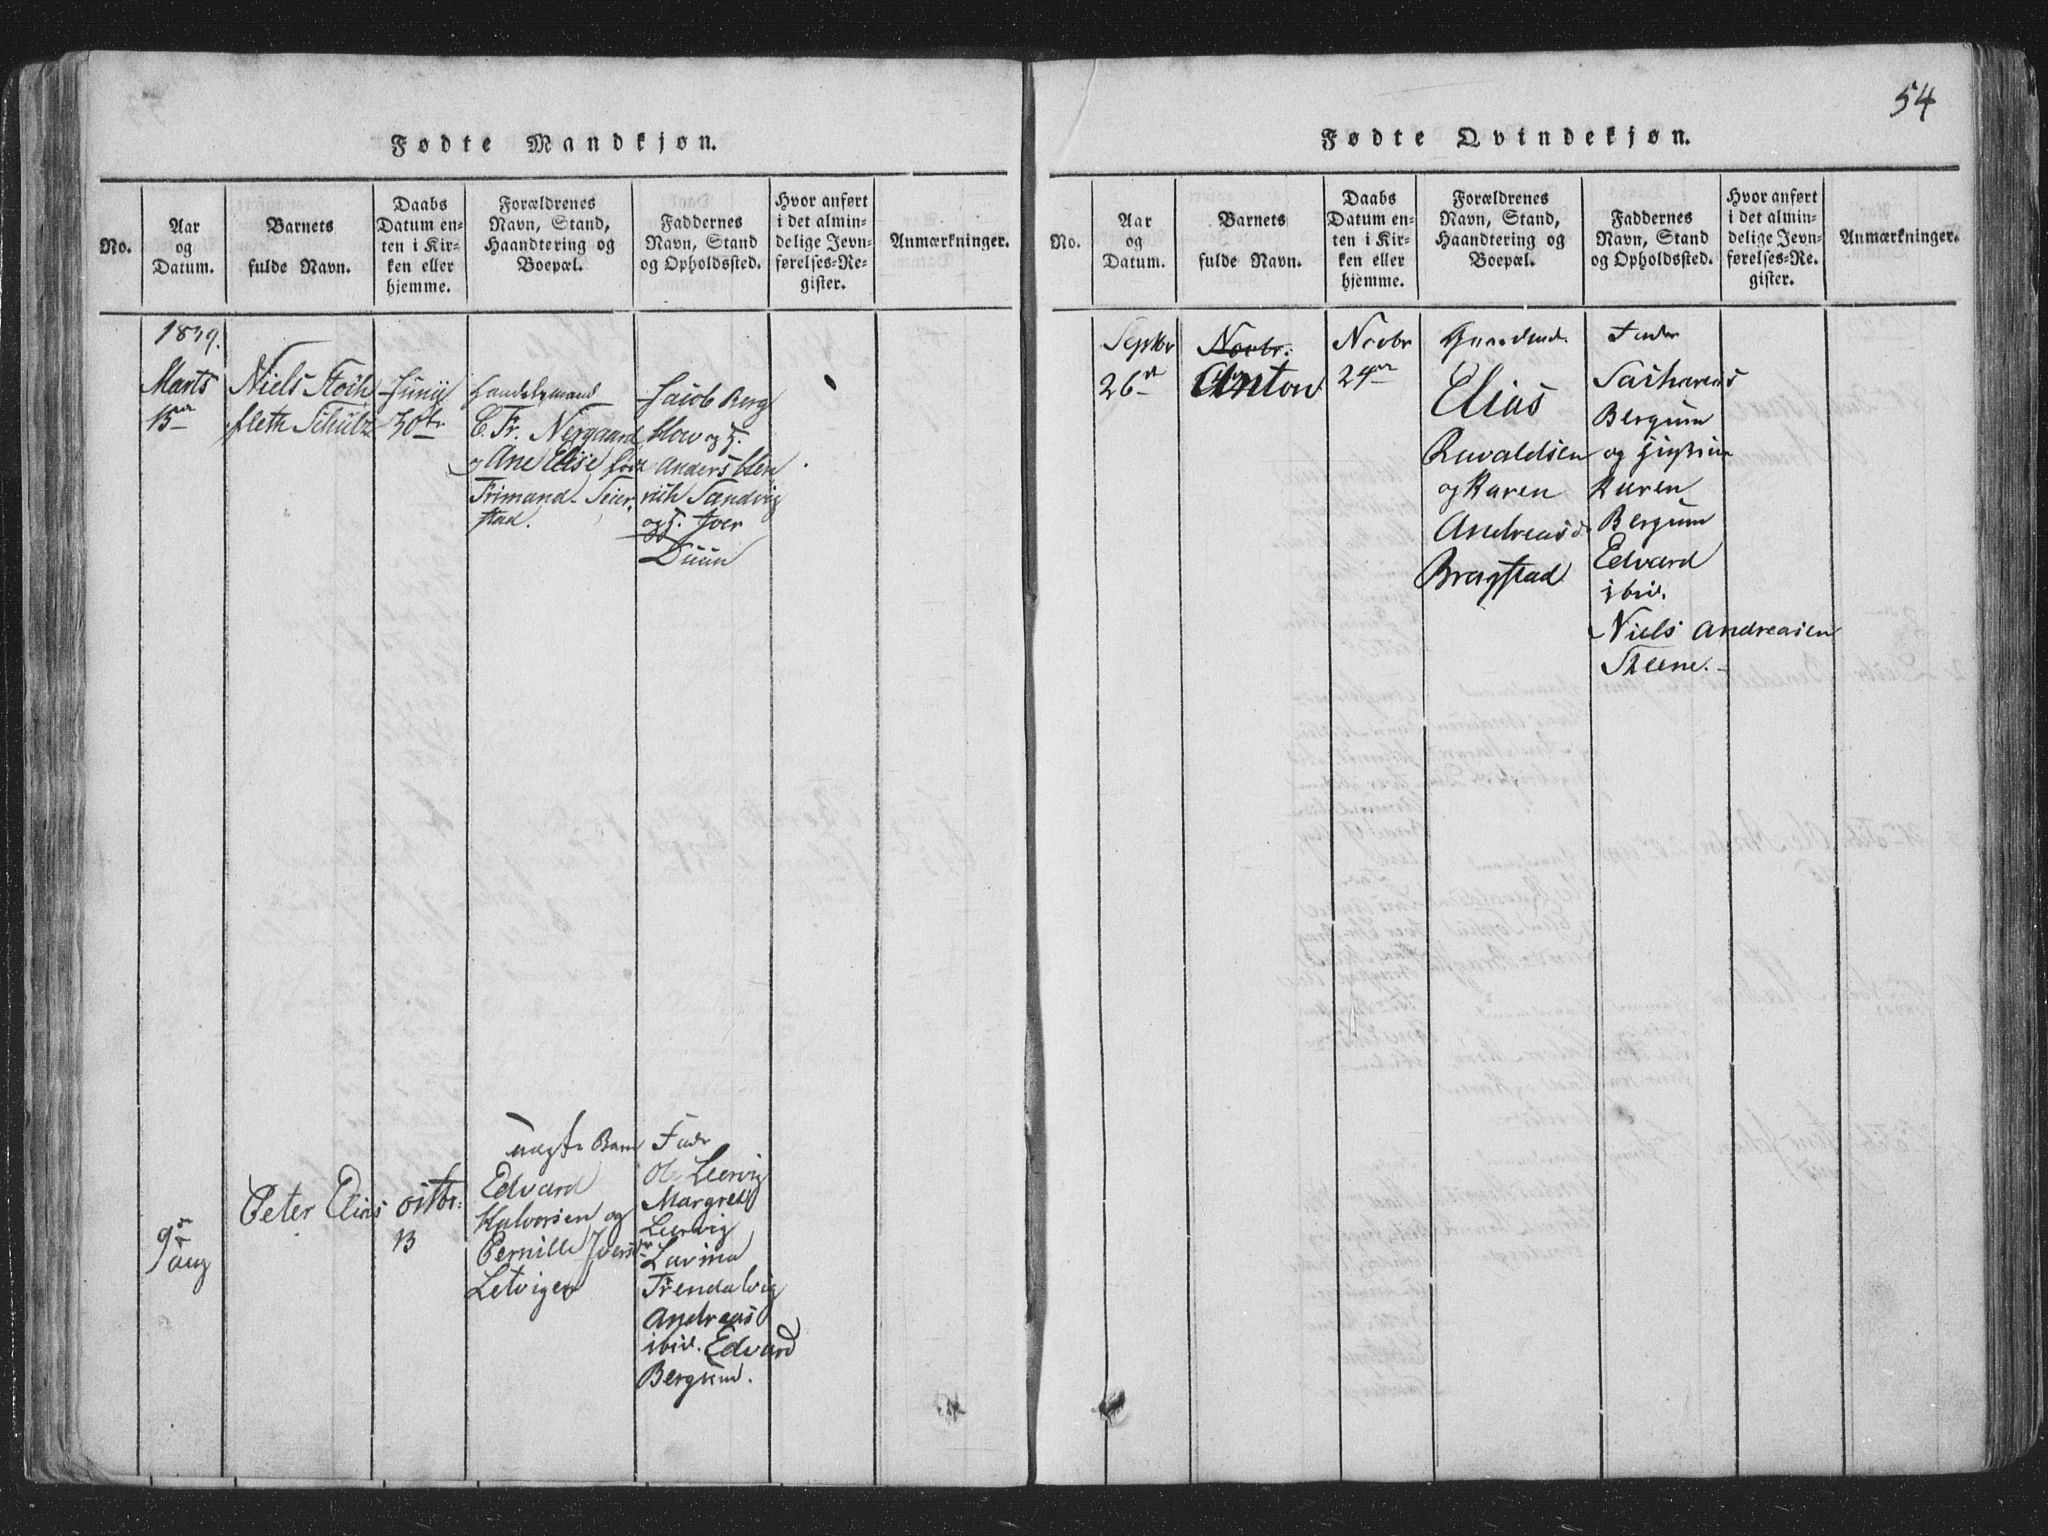 Fødte Mandkjøn.
No.
Aar
og
Datum.
Barnets
fulde Navn.
Daabs
Datum en-
ten i Kir-
ken eller
hjemme.
Forældrenes
Navn, Stand,
Haandtering og
Boepæl.
Faddernes
Navn, Stand
og Opholdssted.
Hvor anført
i det almin-
delige Jevn-
førelses-Re-
gister.
Anmærkninger.
1839.
Marts
15
Niels
Schultz
Junij
30te
Handelsmand
C. Fr. Nergaard
og Ane Elise født
Seier-
stad.
Jacob Berg
Anders
Sandvig
og Iver
Duun
9
aug
Peter Elias
octbr:
13
uægte Barn
Edvard
Halvorsen og
Pernille Iversdr
Letvigen
Fadr
Ole Leervig
Margrete
Leervig
Lavina
Trendalvig
Andreas
ibid. Edvard
Bergum.
54
Fødte Qvindekjøn.
No.
Aar
og
Datum.
Barnets
fulde Navn.
Daabs
Datum en-
ten i Kir-
ken eller
hjemme.
Forældrenes
Navn, Stand,
Haandtering og
Boepæl.
Faddernes
Navn, Stand
og Opholdssted.
Hvor anført
i det almin-
delige Jevn-
førelses-Re-
gister.
Anmærkninger.
Septbr
26
Novbr:
Anton
Novbr
24
Gaardmd.
Elias
og Karen
Andreasd
Bragstad
Fadr
Sacharias
Bergum
og
Karen
Bergum
Edvard
ibid.
Niels Andreasen
Steene.